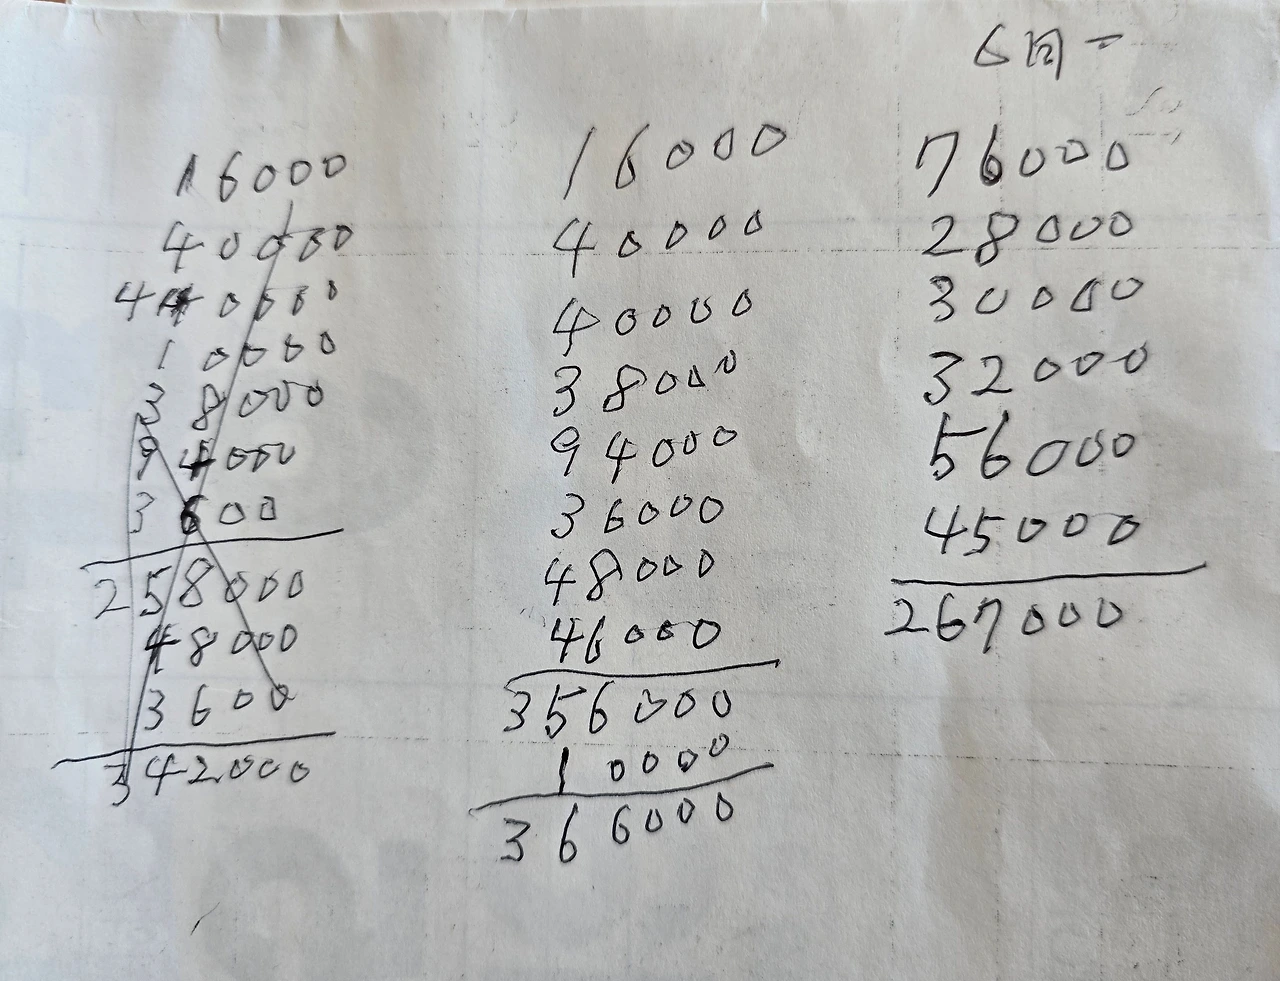 16000
40000
440000
10000
38000
94000
3600
258000
48000
3600
342000
16000
40000
40000
38000
94000
36000
48000
46000
356000
10000
366000
6月一
76000
28000
30000
32000
56000
45000
267000